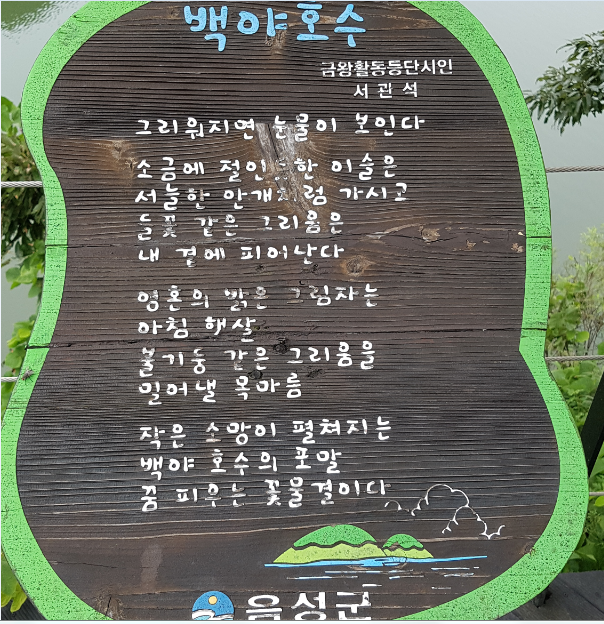 백야호수
금왕활동등단시인
서관석
그리워지면 눈물이 보인다
소금에 절인 한 이슬은
서늘한 안개처럼 가시고
들꽃 같은 그리움은
내 곁에 피어난다
영혼의 맑은 그림자는
아침 햇살
불기둥 같은 그리움을
밀어낼 목마름
작은 소망이 펼쳐지는
백야 호수의 포말
꿈 피우는 꽃물결이다
음성군